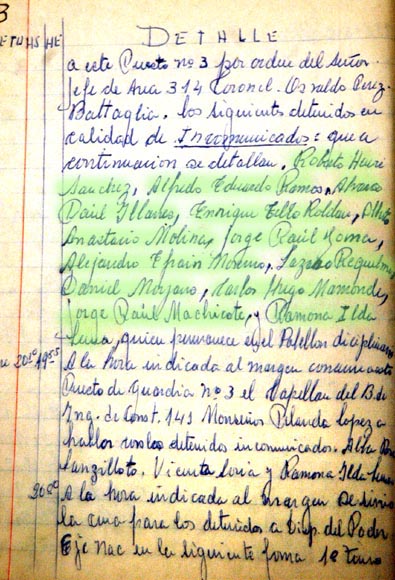 3
DETALLE
a este Puesto nº 3 por orden del Señor
Jefe de Area 314 Coronel. Osvaldo Perez
Battaglia. los siguientes detenidos en
calidad de Incomunicados: que a
continuacion se detallan. Roberto Henri
Sanchez, Alfredo Eduardo Ramos, Alvaro
Raúl Illanes, Enrique Tello Roldan,
Anastacio Molina, Jorge Raúl
Alejandro Efrain Moreno, Lazaro
Daniel Moyano, Carlos Hugo Mamonde,
Jorge Raúl Machicote, y Ramona Ilda
Luna, quien permanece en el Pabellon diciplinario
20:10 1955 A la hora indicada al margen
Puesto de Guardia nº 3 el Capellan del B. de
Ing. de Const. 141 Monseñor Pelanda Lopez a
hablar con los detenidos incomunicados. Alba Rosa
Lanzilloto. Vicenta Soria y Ramona Ilda Luna
A la hora indicada al margen se sirvio
la cena para los detenidos a Disp. del Poder
Eje Nac en la siguiente forma 1º Turno